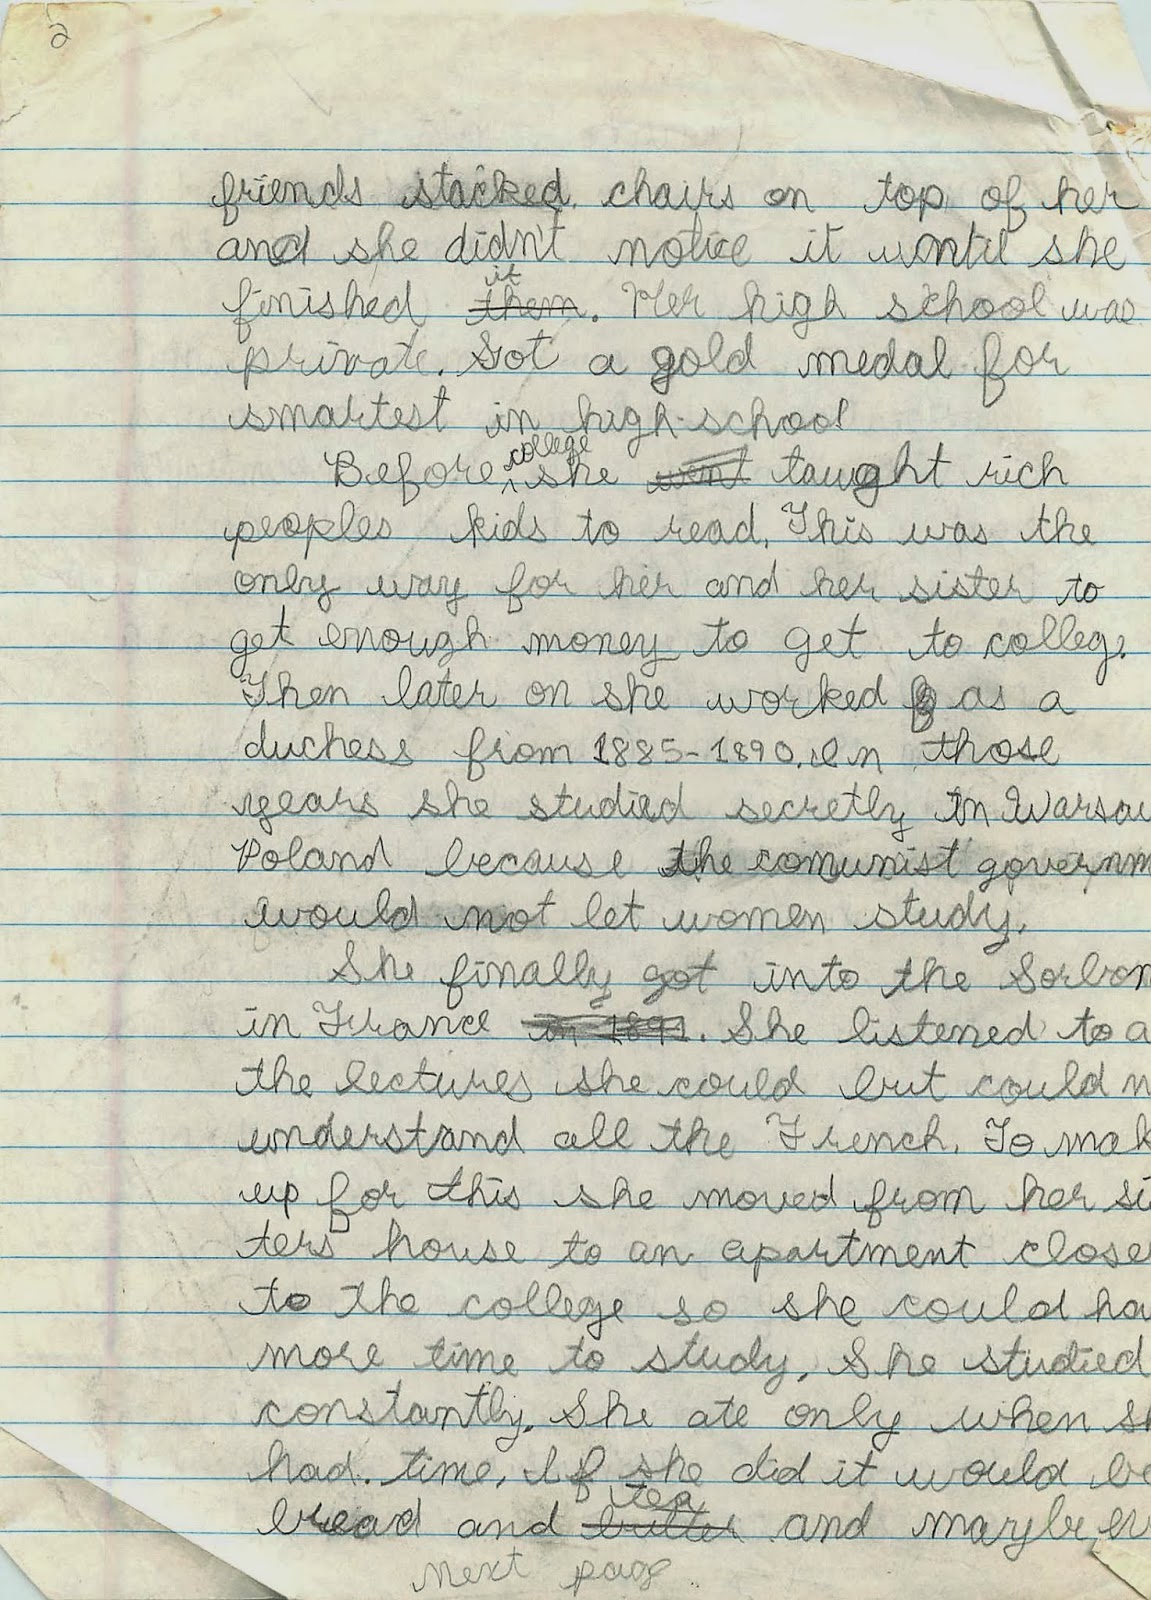 2
friends stacked chairs on top of her
and she didn't notice it until she
it
finished them. Her high school was
private. Got a gold medal for
smartest in high school
college
Before she went taught rich
peoples kids to read. This was the
only way for her and her sister to
get enough money to get to colleg.
Then later on she worked as a
duchess from 1885-1890. In those
years she studied secretly in Warsaw
Poland because the comunist governm
would not let women study.
She finally got into the Sorbon
in France in 1891. She listened to a
the lectures she could but could n
understand all the French. To mak
up for this she moved from her sis
ters house to an apartment close
to the college so she could ha
more time to study. She studied
constantly. She ate only when sh
had time. If she did it would be
tea
bread and butter and maybe
next page